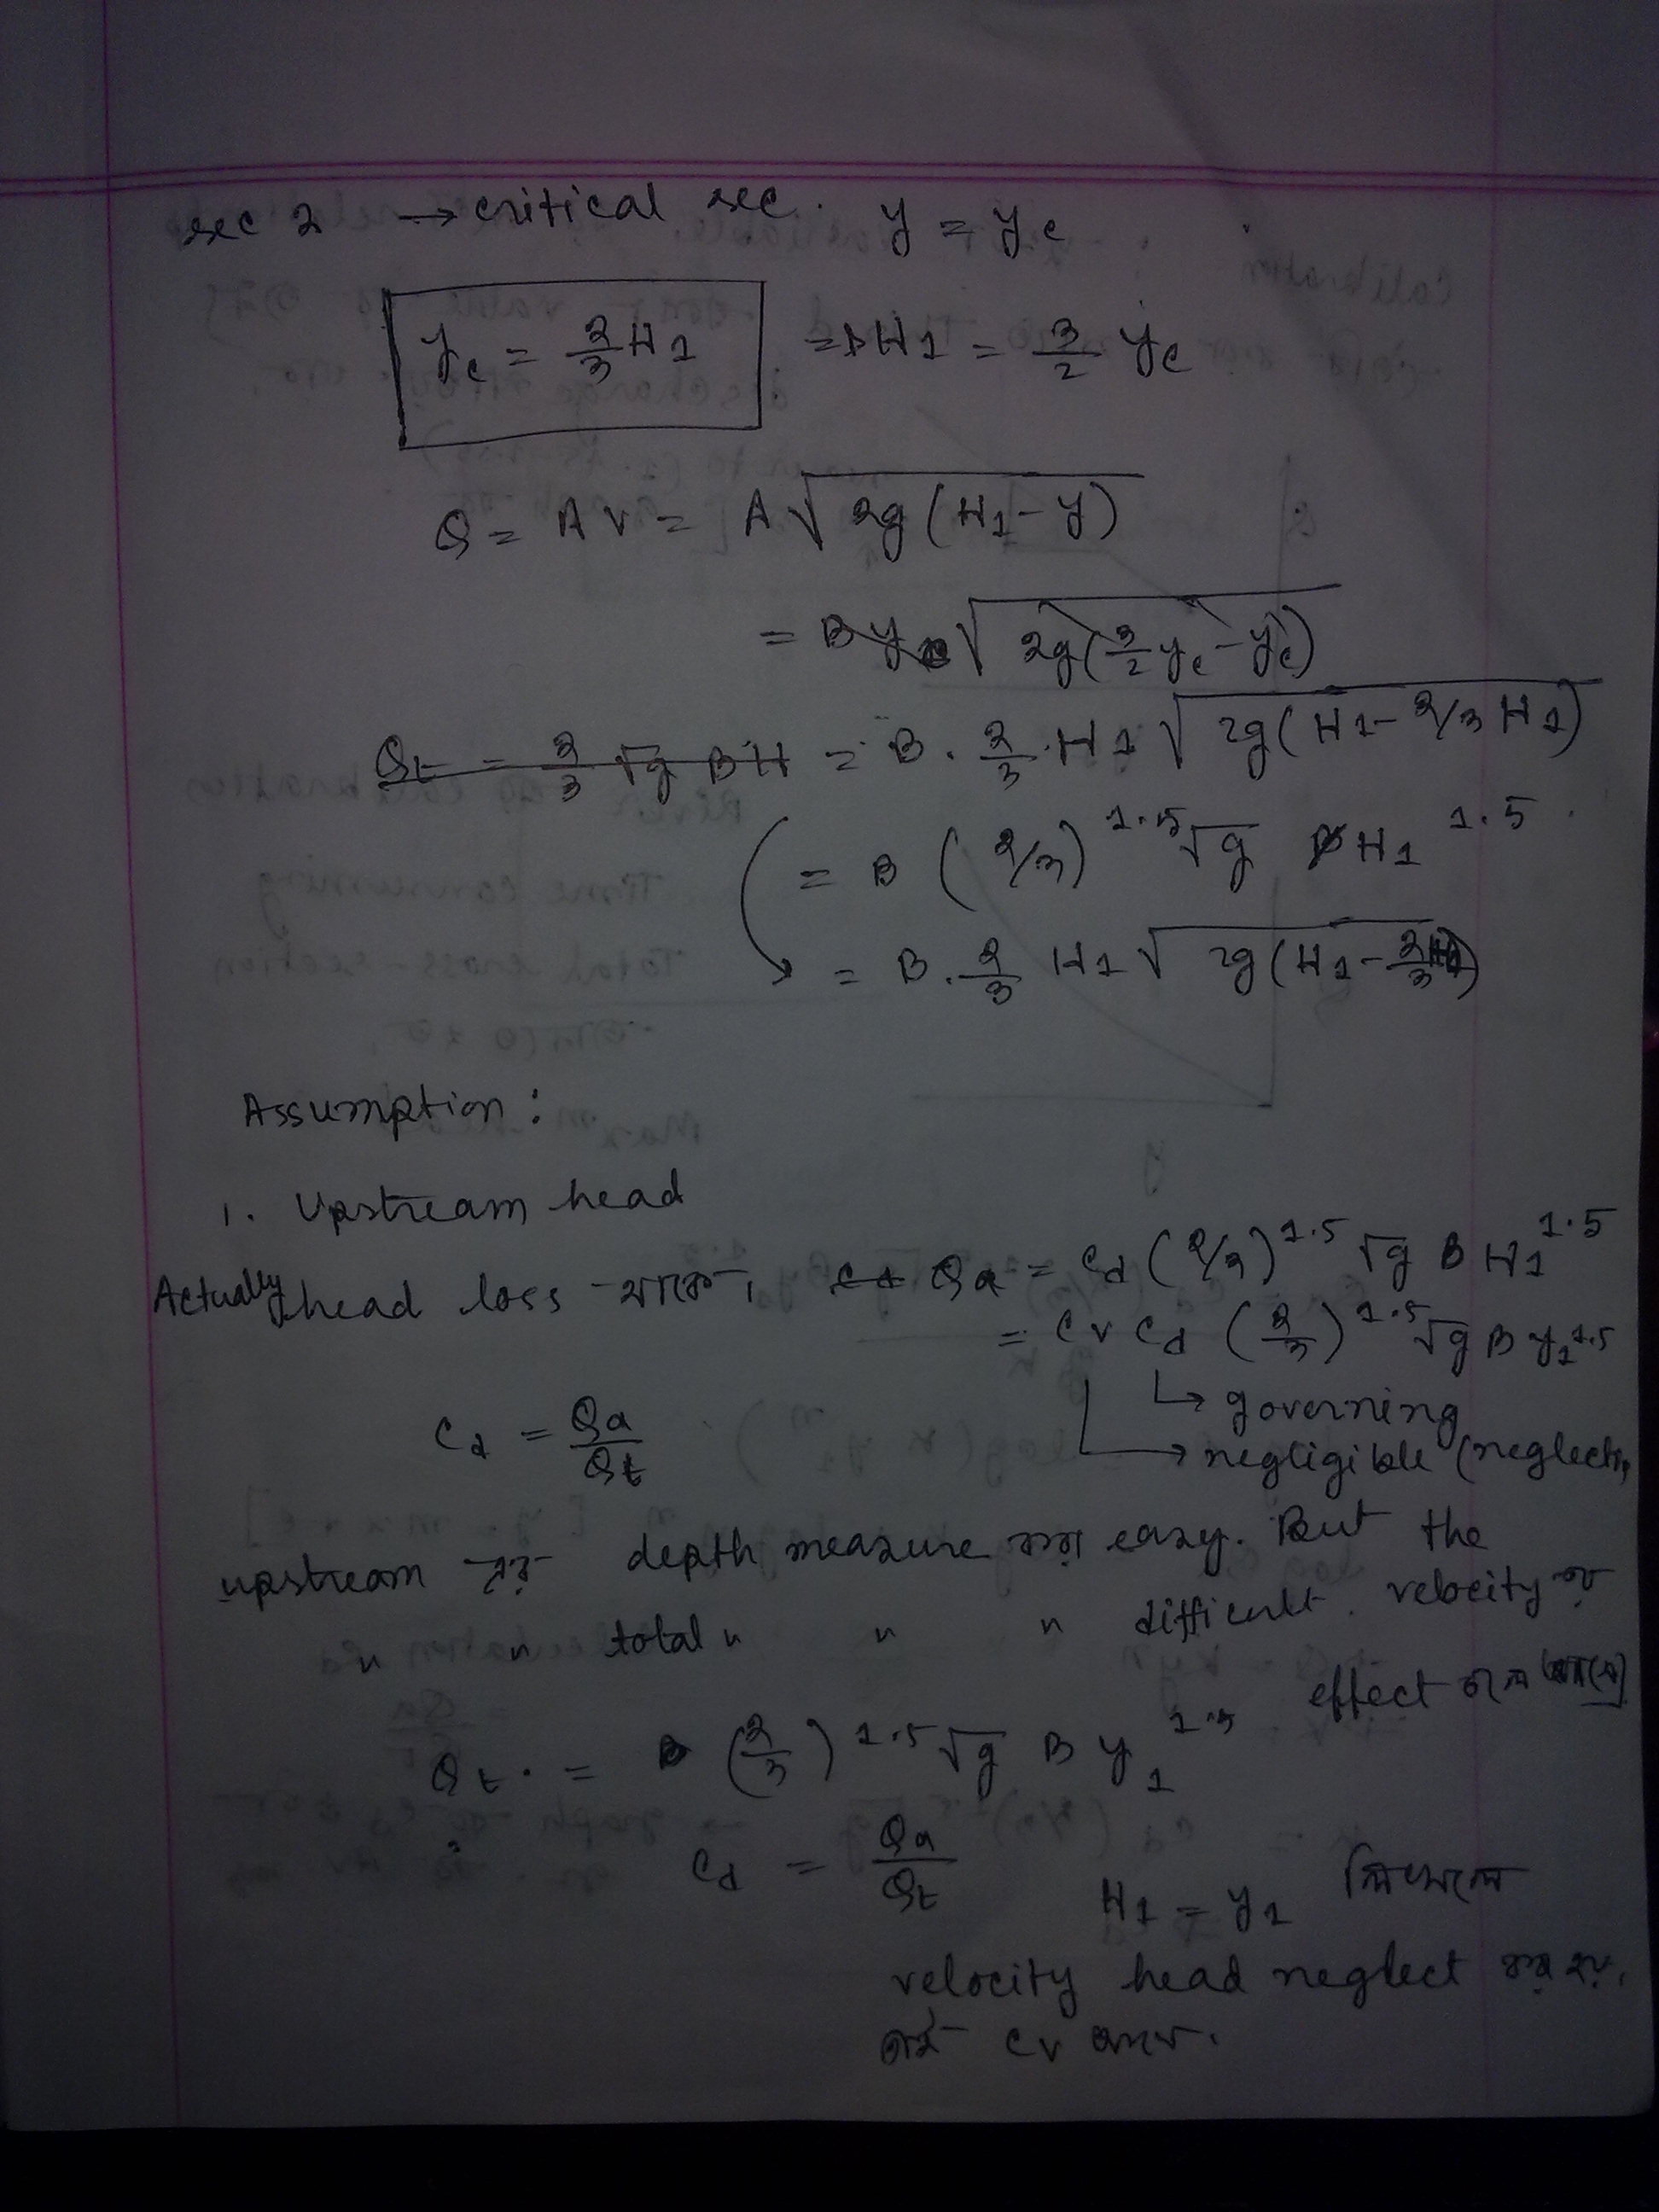 sec 2 → critical sec. y = yc
yc = 2/3 H1 ⇒ H1 = 3/2 yc
Q = AV = A√2g(H1-y)
= By √2g(3/2 yc - yc)
Qt = 2/3 √g BH = B. 2/3 . H1 √2g(H1 - 2/3 H1)
= B (2/3)^1.5 √g H1^1.5
= B. 2/3 H1 √2g(H1 - 2/3 H1)
Assumption:
1. Upstream head
Actually head loss থাকে, Qa = Cd (2/3)^1.5 √g B H1^1.5
= Cv Cd (2/3)^1.5 √g B y1^1.5
↳ governing
Cd = Qa/Qt
→ negligible (neglect
upstream এর depth measure করা easy. But the
" " total " " " difficult. velocity র
effect
Qt. = (2/3)^1.5 √g B y1^1.5
Cd = Qa/Qt
H1 = y1 লিখলে
velocity head neglect করা হয়,
তাই Cv আসে.